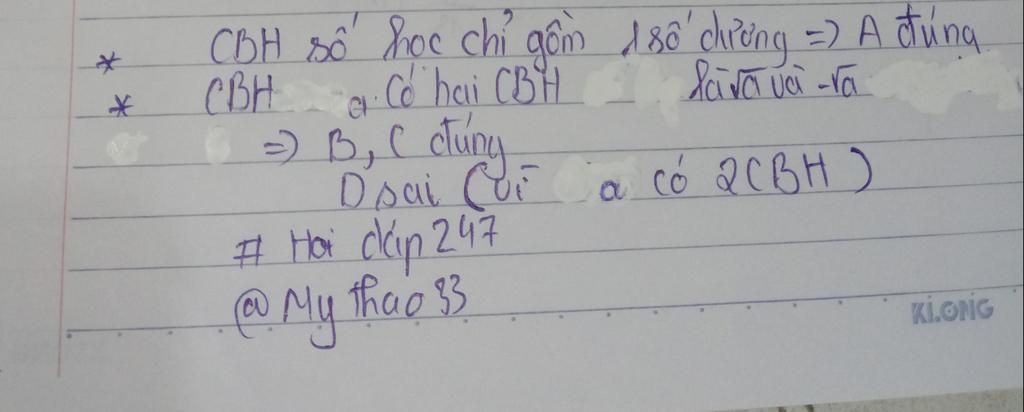 * CBH số học chỉ gồm 1 số dương => A đúng
* CBH a. Có hai CBH là √a và -√a
=> B, C đúng
D sai (vì a có 2CBH)
# Hoi dáp 247
@My thao 33
KI.ONG